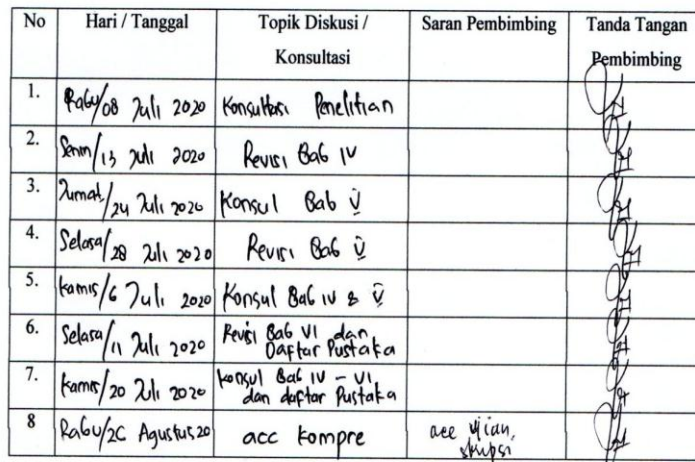 No Hari / Tanggal Topik Diskusi / Konsultasi Saran Pembimbing Tanda Tangan Pembimbing
1. Rabu/08 Juli 2020 Konsultasi Penelitian
2. Senin/13 Juli 2020 Revisi Bab IV
3. Jumat/24 Juli 2020 Konsul Bab V
4. Selasa/28 Juli 2020 Revisi Bab V
5. Kamis/6 Juli 2020 Konsul Bab IV & V
6. Selasa/11 Juli 2020 Revisi Bab VI dan
Daftar Pustaka
7. Kamis/20 Juli 2020 Konsul Bab IV - VI
dan daftar Pustaka
8 Rabu/26 Agustus 20 acc kompre acc ujian,
skripsi